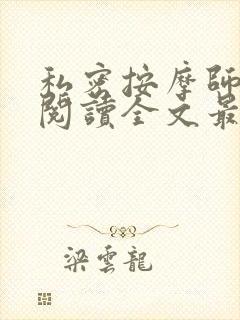 私密按摩師
閱讀全文最
梁雲龍